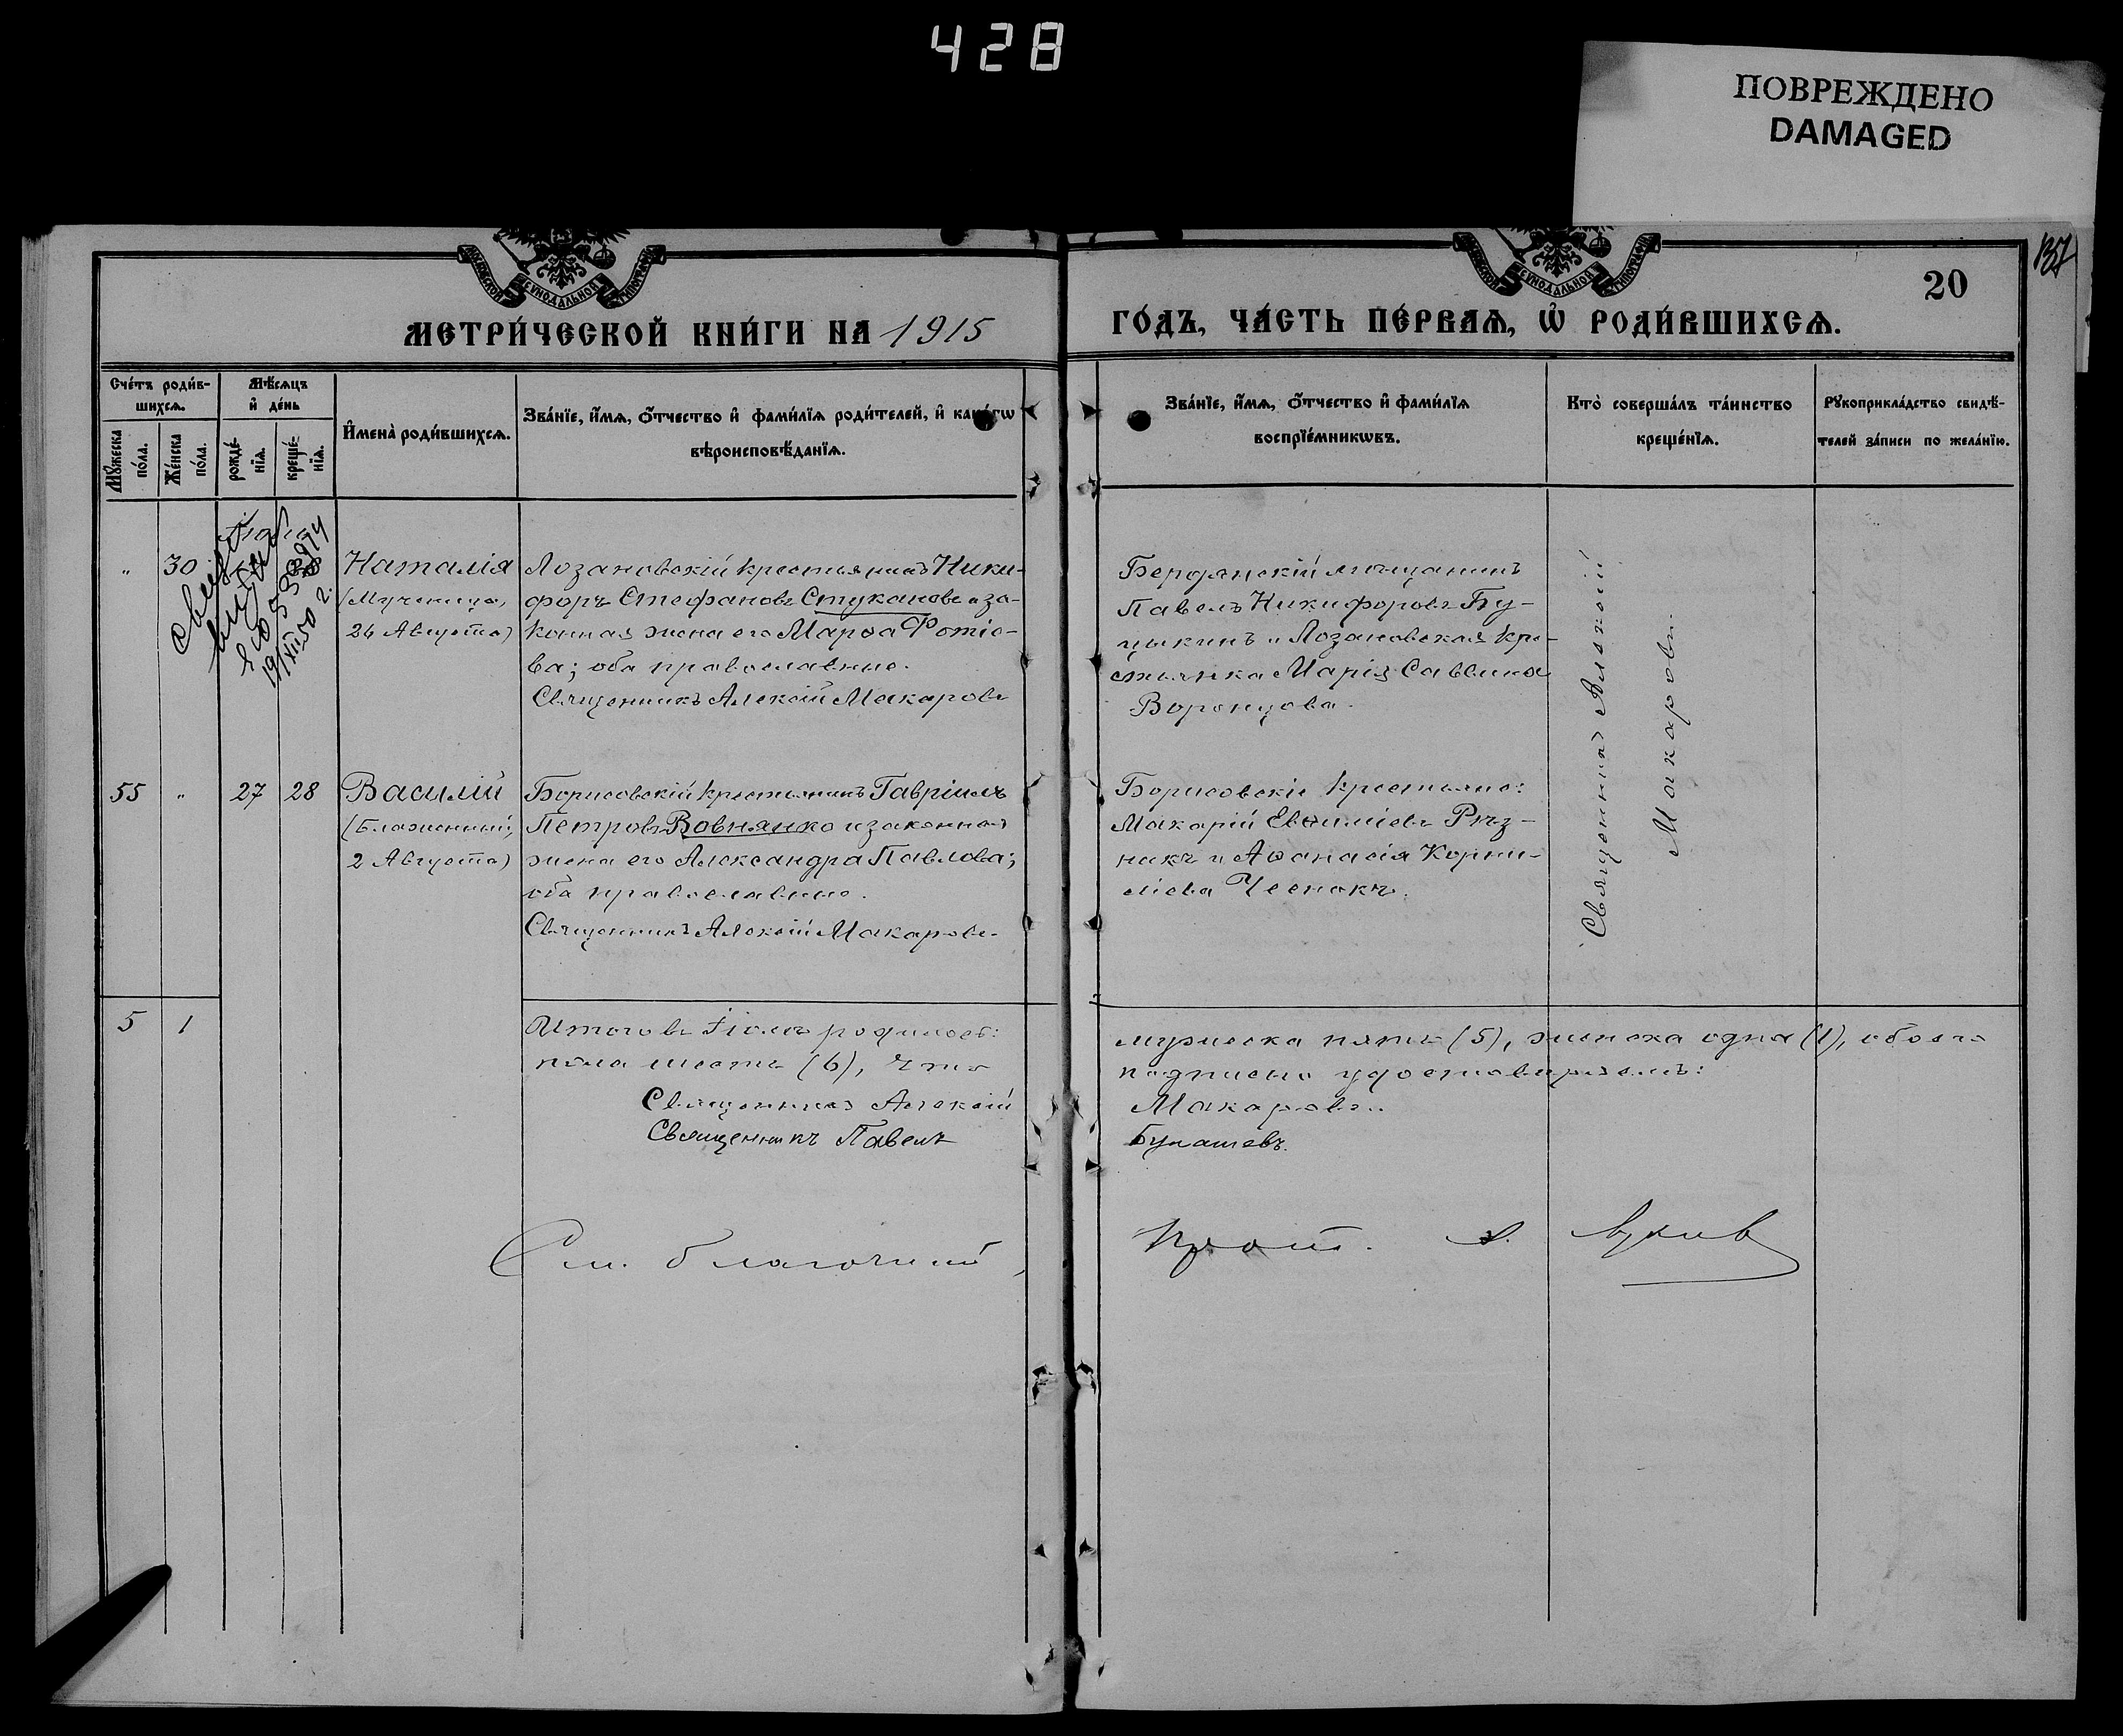 428
ПОВРЕЖДЕНО
DAMAGED
20
МЕТРИ́ЧЕСКОЙ КНИ́ГИ НА 1915
ГО́ДЪ, ЧА́СТЬ ПЕ́РВАѦ, Ѡ҆ РОДИ́ВШИХСѦ.
Сче́тъ роди́в-
шихсѧ.
Мѣ́сѧцъ
и҆ де́нь
Мꙋ́жеска
по́ла.
Же́нска
по́ла.
рожде́-
нїѧ.
креще́-
нїѧ.
И҆мена̀ роди́вшихсѧ.
Зва́нїе, и҆́мѧ, ѻ҆́тчество и҆ фами́лїѧ роди́телей, и҆ како́гѡ
вѣроисповѣ́данїѧ.
Зва́нїе, и҆́мѧ, ѻ҆́тчество и҆ фами́лїѧ
воспрїе́мникѡвъ.
Кто̀ соверша́лъ та́инство
креще́нїѧ.
Рꙋкоприкла́дство свидѣ́-
телей за́писи по жела́нїю.
30
19/XII 50 г.
Наталія
(Мученица,
26 Августа)
Лозановскій крестьянинъ Ники-
форъ Стефановъ Стукановъ и за-
конная жена его Марѳа Фотіе-
ва; оба православные.
Священникъ Алексій Макаровъ
Бердянскій мѣщанинъ
Павелъ Никифоровъ Пу-
цыкинъ и Лозановская кре-
стьянка Марія Саввина
Воронцова.
Священникъ Алексій
Макаровъ.
55 " 27 28
Василій
(Блаженный,
2 Августа)
Борисовскій крестьянинъ Гавріилъ
Петровъ Вовнянко и законная
жена его Александра Павлова;
оба православные.
Священникъ Алексій Макаровъ
Борисовскіе крестьяне:
Макарій Евѳиміевъ Рѣз-
накъ и Аѳанасія Корни-
ліева Чеснокъ.
5 1
Итого въ Іюлѣ родилось:
мужеска пять (5), женска одна (1), обоего
пола шесть (6), что
подписью удостовѣряемъ:
Священникъ Алексій
Макаровъ.
Священникъ Павелъ
Булашевъ.
См. благочинный,
Прот. А.